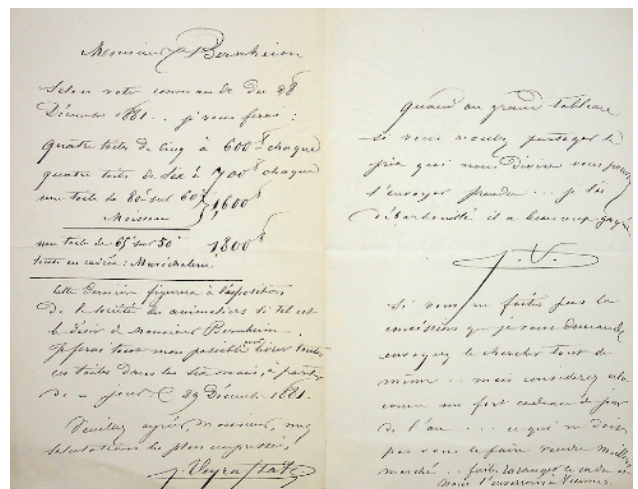 Monsieur Bernheim
Selon votre commande du 28
Décembre 1881.. je vous ferai :
Quatre toiles de Cinq à 600f chaque
quatre toiles de six à 700f chaque
une toile de 80c sur 60c 1,600f
Moisson
une toile de 65c sur 50c 1800f
toute en : Maréchalerie
Cette Dernière figurera à l'exposition
De la Société des animaliers si tel est
le désir de Monsieur Bernheim.
Je ferai tout mon possible pour livrer toutes
ces toiles dans les six mois, à partir
de ce jour. 29 Décembre 1881.
Veuillez agréer, monsieur, mes
salutations les plus empressées,
J. Veyrassat
Quand au grand tableau
si vous voulez partager le
prix qui nous Divise vous pouvez
l'envoyer prendre... je l'ai
débarbouillé il a beaucoup gagné
J. V.
Si vous ne faites pas la
concession que je vous demande
envoyez le chercher tout de
même.. mais considérez cela
comme un fort cadeau de jour
de l'an... ce qui ne doit
pas vous le faire vendre meilleur
marché.. faites arranger le cadre et
nous l'enverrons à Vienne.